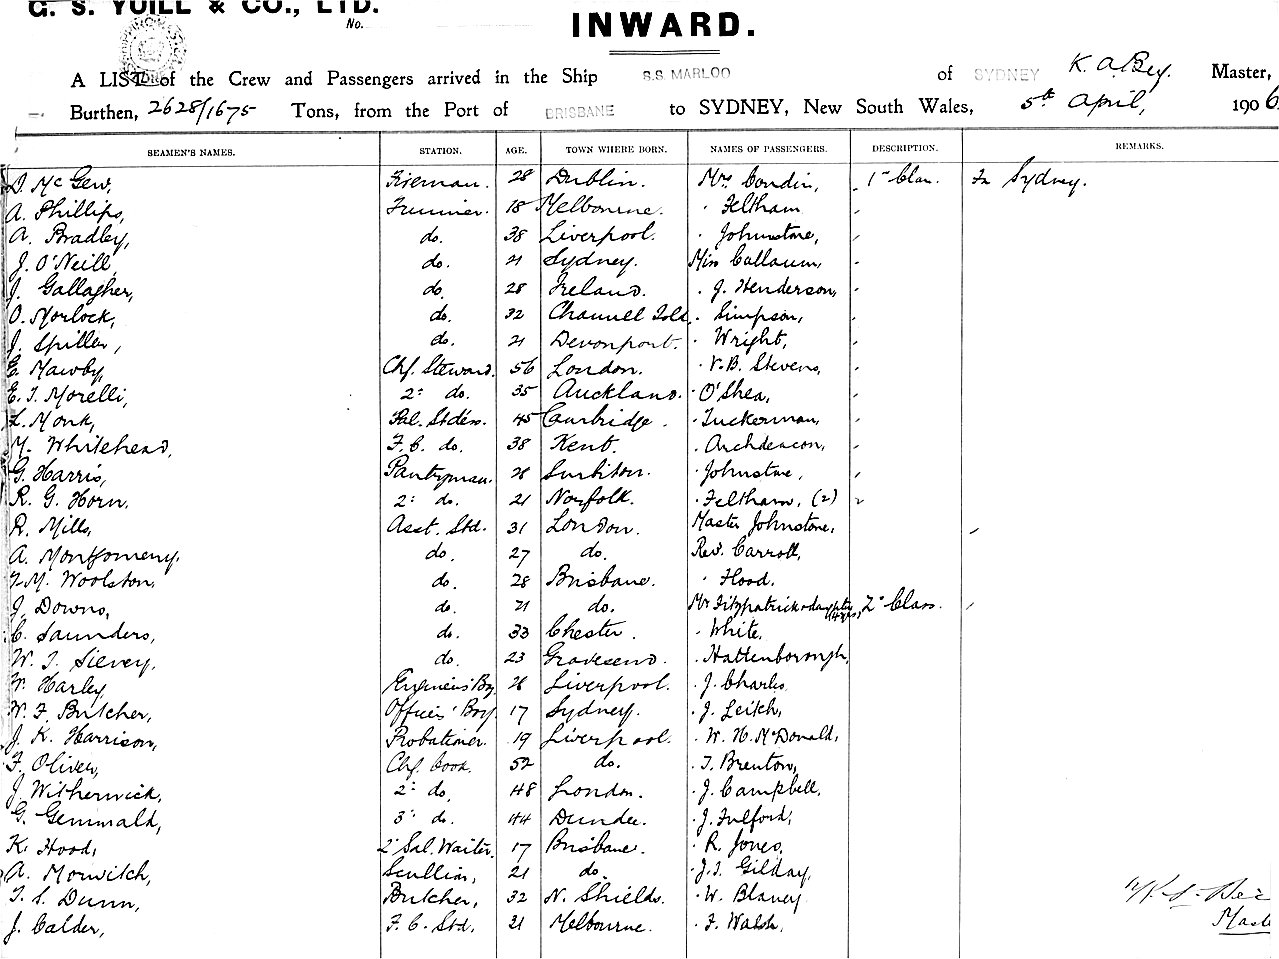 G. S. YUILL & CO., LTD.
No.
INWARD.
A LIST of the Crew and Passengers arrived in the Ship S.S. MARLOO of SYDNEY Master,
Burthen, 2628/1675 Tons, from the Port of BRISBANE to SYDNEY, New South Wales, 5th April, 1906
SEAMEN'S NAMES. STATION. AGE. TOWN WHERE BORN. NAMES OF PASSENGERS. DESCRIPTION. REMARKS.
Fireman. 28 Dublin. Mrs Condin, 1st Class. In Sydney.
A. Phillips, Trimmer. 18 Melbourne. " Feltham
A. Bradley, do. 38 Liverpool. " Johnstone,
J. O'Neill, do. 21 Sydney. Miss Callaum,
J. Gallagher, do. 28 Ireland. " J. Henderson,
O. Morlock, do. 32 Channel Isld. " Simpson,
J. Spiller, do. 21 Devonport. " Wright,
E. Mawby, Chf. Steward. 56 London. " V.B. Stevens,
E. J. Morelli, 2nd do. 35 Auckland. " O'Shea,
Monk, 45 Cambridge. " Tuckerman,
M. Whitehead, F.C. do. 38 Kent. " Archdeacon,
G. Harris, Pantryman. 28 Surbiton. " Johnstone,
R. G. Horn, 2nd do. 21 Norfolk. " Feltham, (2)
R. Mills, Asst. Std. 31 London. Master Johnstone,
A. Montgomery. do. 27 do. Rev. Carroll,
Woolston. do. 28 Brisbane. " Hood.
J. Downs, do. 21 do. Mr Fitzpatrick & daughter, 2nd Class.
C. Saunders, do. 33 Chester. " White,
W. J. Sievey. do. 23 Gravesend. " Hattenborough,
W. Harley, Engineers' Boy 28 Liverpool. " J. Charles
W. F. Butcher, Officers' Boy. 17 Sydney. " J. Leitch,
J. K. Harrison, Probationer. 19 Liverpool. " W. H. McDonald,
F. Oliver, Chf. Cook. 52 do. " T. Brenton,
J. Witherwick, 2nd do. 48 London. " J. Campbell,
G. Gemmald, 3rd do. 44 Dundee. " J. Fulford,
K. Hood, 2nd Sal. Waiter. 17 Brisbane. " R. Jones,
A. Morwitch, Scullion, 21 do. " J.J. Gilday,
T. S. Dunn, Butcher, 32 N. Shields. " W. Blaney
J. Calder, F. C. Std. 21 Melbourne. " F. Walsh,